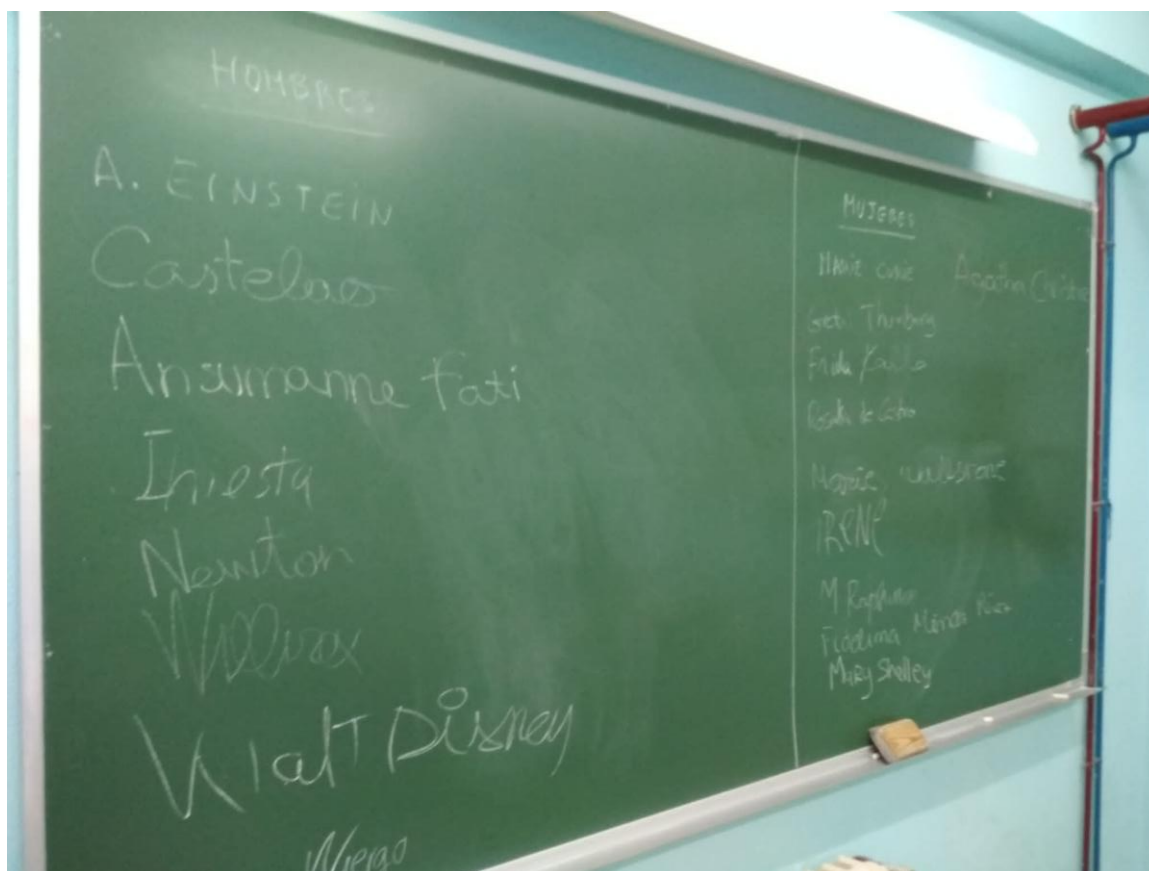 HOMBRES
A. EINSTEIN
Castelao
Ansumanne Fati
Iniesta
Newton
Willirex
Walt Disney
MUJERES
MARIE CURIE Agatha Christie
Greta Thunberg
Frida Kahlo
Rosalía de Castro
IRENE
M Rapinoe
Fidelina Méndez Pérez
Mary Shelley